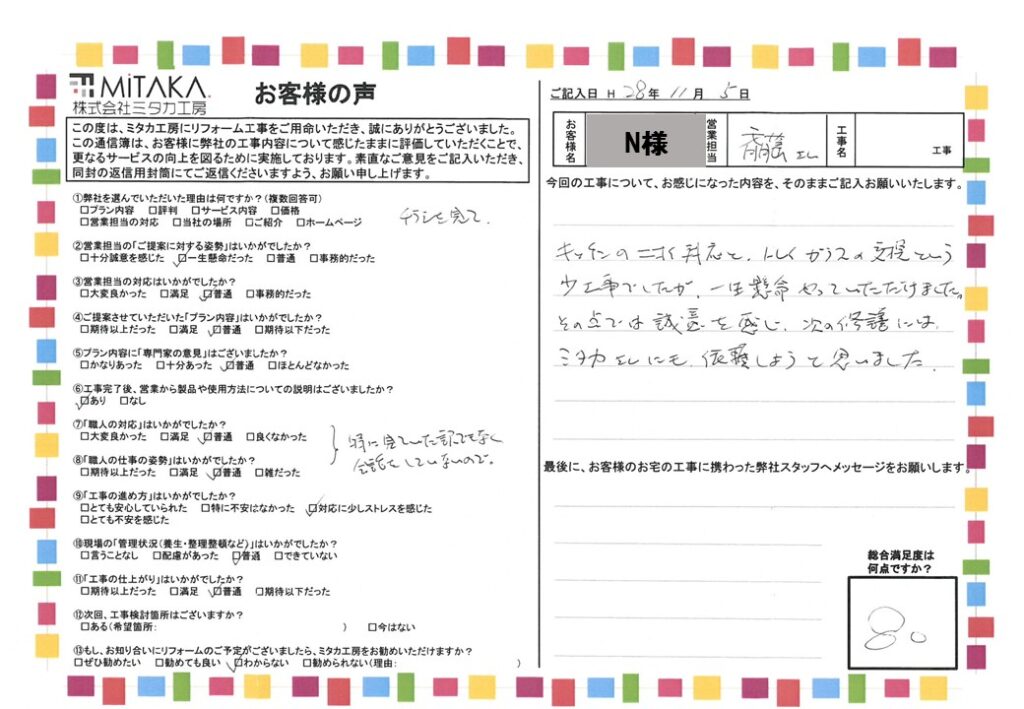 MiTAKA
株式会社ミタカ工房
お客様の声
この度は、ミタカ工房にリフォーム工事をご用命いただき、誠にありがとうございました。
この通信簿は、お客様に弊社の工事内容について感じたままに評価していただくことで、
更なるサービスの向上を図るために実施しております。素直なご意見をご記入いただき、
同封の返信用封筒にてご返信くださいますよう、お願い申し上げます。
①弊社を選んでいただいた理由は何ですか?(複数回答可)
□プラン内容 □評判 □サービス内容 □価格
□営業担当の対応 □当社の場所 □ご紹介 □ホームページ
チラシを見て、
②営業担当の「ご提案に対する姿勢」はいかがでしたか?
□十分誠意を感じた ☑一生懸命だった □普通 □事務的だった
③営業担当の対応はいかがでしたか?
□大変良かった □満足 ☑普通 □事務的だった
④ご提案させていただいた「プラン内容」はいかがでしたか?
□期待以上だった □満足 ☑普通 □期待以下だった
⑤プラン内容に「専門家の意見」はございましたか?
□かなりあった □十分あった ☑普通 □ほとんどなかった
⑥工事完了後、営業から製品や使用方法についての説明はございましたか?
☑あり □なし
⑦「職人の対応」はいかがでしたか?
□大変良かった □満足 ☑普通 □良くなかった
⑧「職人の仕事の姿勢」はいかがでしたか?
□期待以上だった □満足 ☑普通 □雑だった
特に見ていた訳でもなく
会話もしていないので。
⑨「工事の進め方」はいかがでしたか?
□とても安心していられた □特に不安はなかった ☑対応に少しストレスを感じた
□とても不安を感じた
⑩現場の「管理状況(養生・整理整頓など)」はいかがでしたか?
□言うことなし □配慮があった ☑普通 □できていない
⑪「工事の仕上がり」はいかがでしたか?
□期待以上だった □満足 ☑普通 □期待以下だった
⑫次回、工事検討箇所はございますか?
□ある(希望箇所: ) □今はない
⑬もし、お知り合いにリフォームのご予定がございましたら、ミタカ工房をお勧めいただけますか?
□ぜひ勧めたい □勧めても良い ☑わからない □勧められない(理由: )
ご記入日 H 28年 11月 5日
お客様名 N様 営業担当 斉藤さん 工事名 工事
今回の工事について、お感じになった内容を、そのままご記入お願いいたします。
キッチンのニオイ対応と、トイレガラスの交換という
少工事でしたが、一生懸命やっていただけました。
その点では誠意を感じ、次の修繕には、
ミタカさんにも依頼しようと思いました。
最後に、お客様のお宅の工事に携わった弊社スタッフへメッセージをお願いします。
総合満足度は
何点ですか?
80